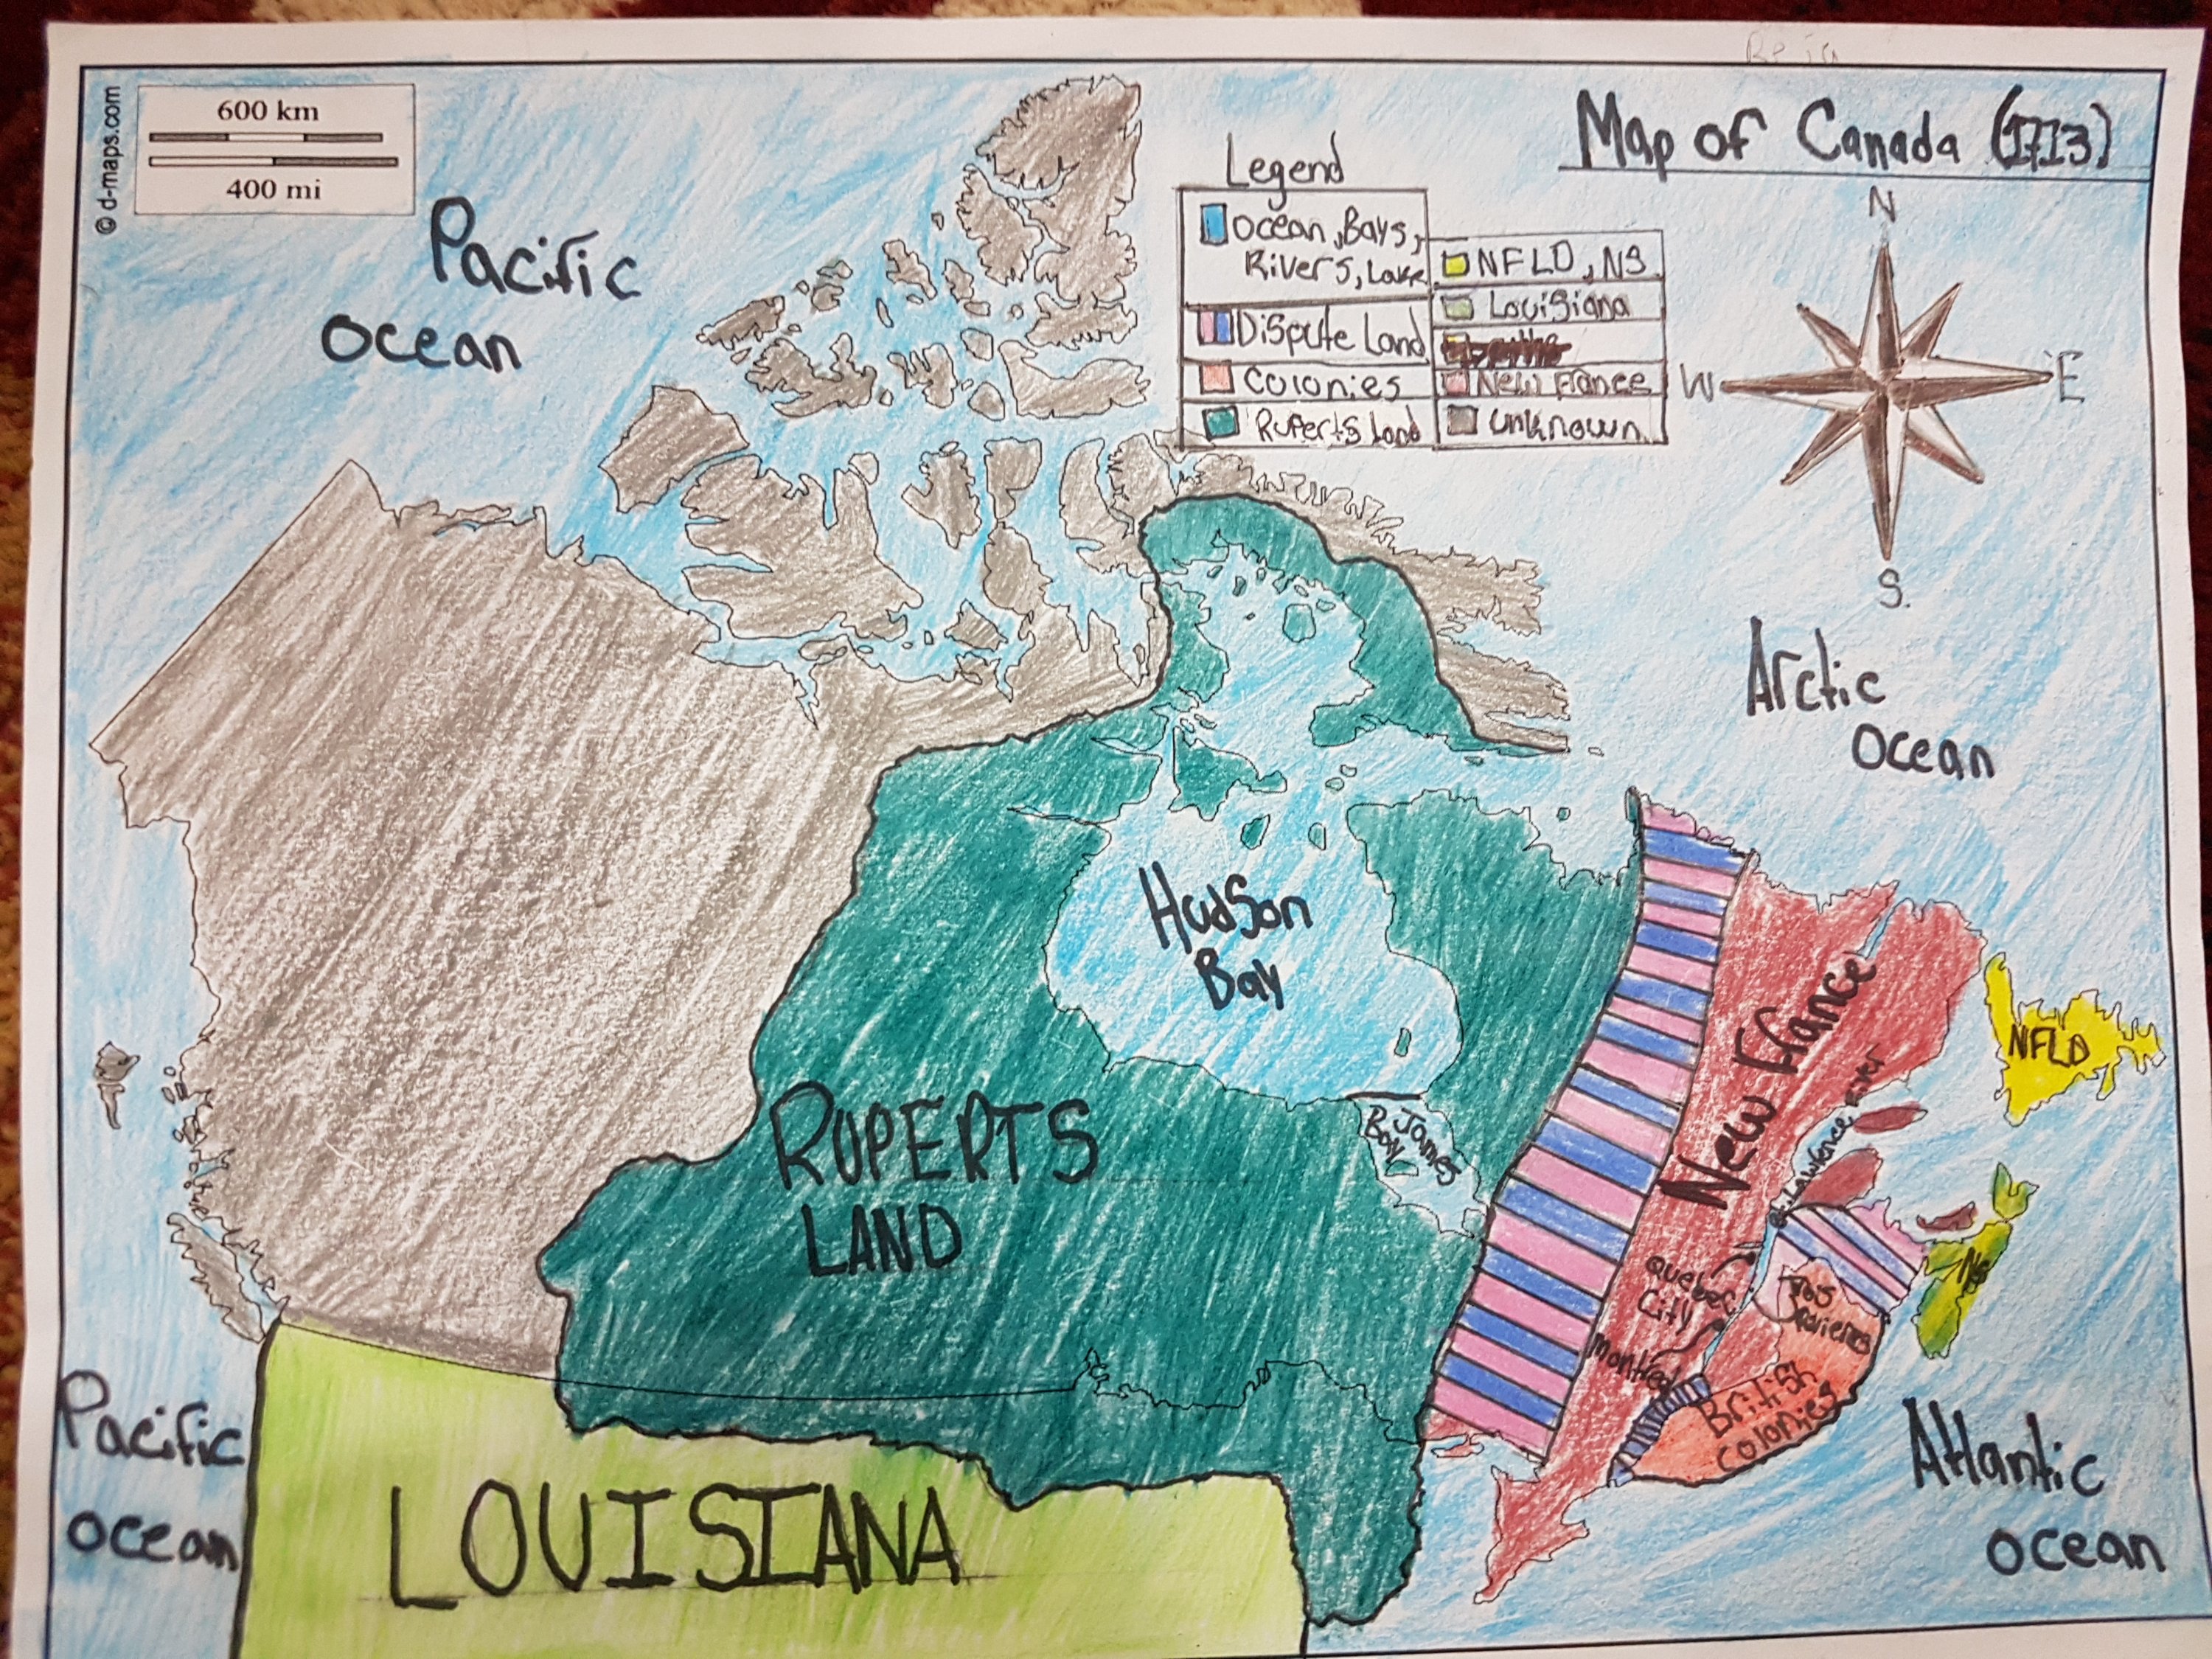 600 km
400 mi
© d-maps.com
Map of Canada (1713)
Legend
Ocean, Bays,
Rivers, Lake
Dispute Land
Colonies
Ruperts Land
NFLD, NS
Louisiana
New France
unknown
N
W
E
S
Pacific
Ocean
Arctic
Ocean
Hudson
Bay
James
Bay
RUPERTS
LAND
New France
NFLD
St. Lawrence River
NS
Quebec
City
Montreal
British
Colonies
Pacific
Ocean
LOUISIANA
Atlantic
Ocean